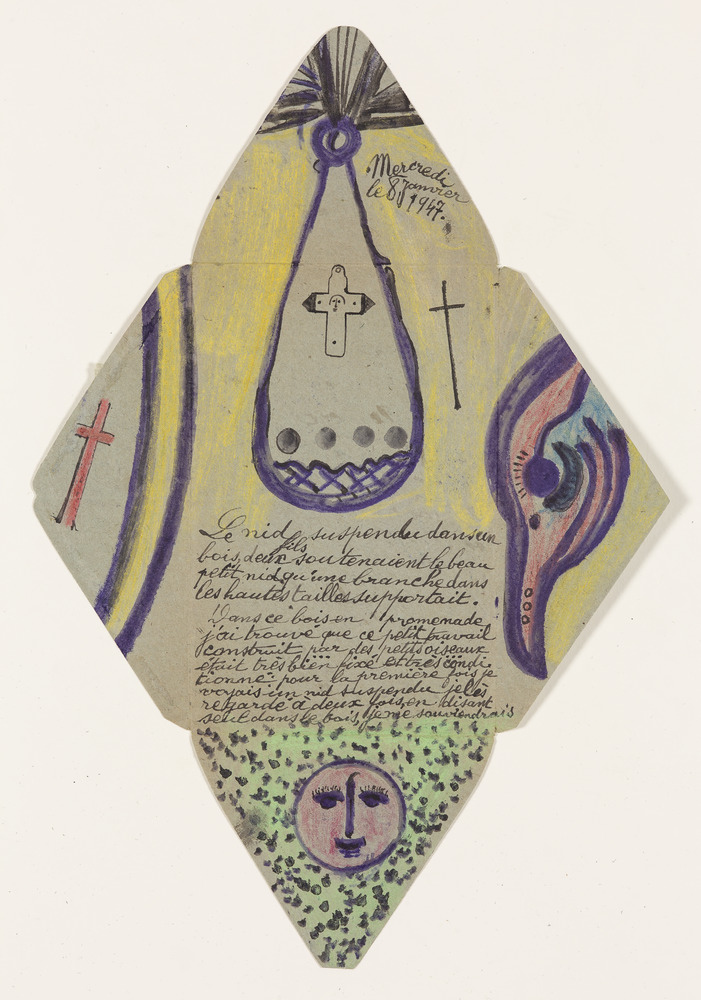 Mercredi
le 8 Janvier
1947.
Le nid suspendu dans un
bois, deux fils soutenaient le beau
petit nid qu'une branche dans
les hautes tailles supportait.
Dans ce bois en promenade
j'ai trouvé que ce petit travail
construit par des petits oiseaux
était très bien fixé et très condi-
tionné pour la première fois je
voyais un nid suspendu je l'ai
regardé a deux fois, en disant
seul dans le bois, je me souviendrais